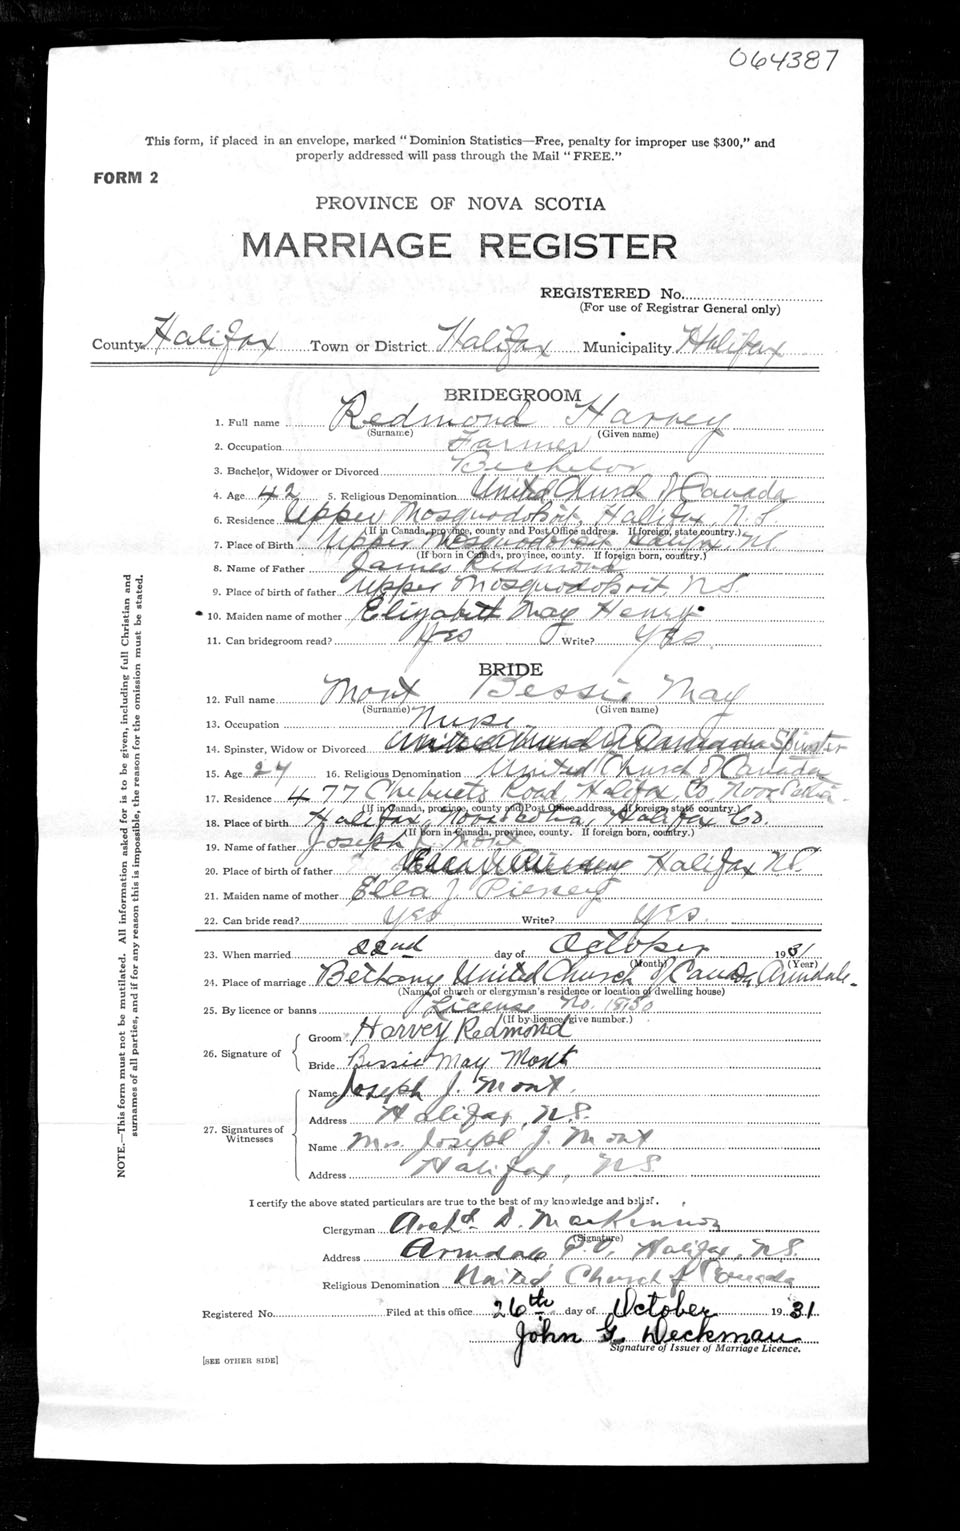 064387
This form, if placed in an envelope, marked "Dominion Statistics—Free, penalty for improper use $300," and
properly addressed will pass through the Mail "FREE."
FORM 2
PROVINCE OF NOVA SCOTIA
MARRIAGE REGISTER
REGISTERED No.
(For use of Registrar General only)
County Halifax Town or District Halifax Municipality Halifax
BRIDEGROOM
1. Full name Redmond Harvey
(Surname) (Given name)
2. Occupation Farmer
3. Bachelor, Widower or Divorced Bachelor
4. Age 42 5. Religious Denomination United Church of Canada
6. Residence Upper Mosquodoboit, Halifax, N.S.
(If in Canada, province, county and Post Office address. If foreign, state country.)
7. Place of Birth Upper Mosquodoboit Halifax, N.S.
(If born in Canada, province, county. If foreign born, country.)
8. Name of Father James Redmond
9. Place of birth of father Upper Mosquodoboit, N.S.
10. Maiden name of mother Elizabeth May Henry
11. Can bridegroom read? Yes Write? Yes
BRIDE
12. Full name Mont Bessie May
(Surname) (Given name)
13. Occupation Nurse
14. Spinster, Widow or Divorced United Church of Canada Spinster
15. Age 24 16. Religious Denomination United Church of Canada
17. Residence 477 Chebucto Road, Halifax Co, Nova Scotia
(If in Canada, province, county and Post Office address, If foreign, state country.)
18. Place of birth Halifax, Nova Scotia, Halifax Co.
(If born in Canada, province, county. If foreign born, country.)
19. Name of father Joseph J. Mont
20. Place of birth of father Halifax N.S.
21. Maiden name of mother Ella J.
22. Can bride read? Yes Write? Yes.
23. When married 22nd day of October 1931
(Month) (Year)
24. Place of marriage Bethany United Church of Canada, Armdale
(Name of church or clergyman's residence or location of dwelling house)
25. By licence or banns License No.
(If by licence give number.)
26. Signature of
Groom Harvey Redmond
Bride Bessie May Mont
27. Signatures of Witnesses
Name Joseph J. Mont.
Address Halifax, N.S.
Name Mrs. Joseph J. Mont
Address Halifax, N.S.
I certify the above stated particulars are true to the best of my knowledge and belief.
Clergyman Archd D. MacKinnon
(Signature)
Address Armdale P.O, Halifax, N.S.
Religious Denomination United Church of Canada
Registered No. Filed at this office 26th day of October 1931
John G. Deckman
Signature of Issuer of Marriage Licence.
[SEE OTHER SIDE]
NOTE.—This form must not be mutilated. All information asked for is to be given, including full Christian and
surnames of all parties, and if for any reason this is impossible, the reason for the omission must be stated.